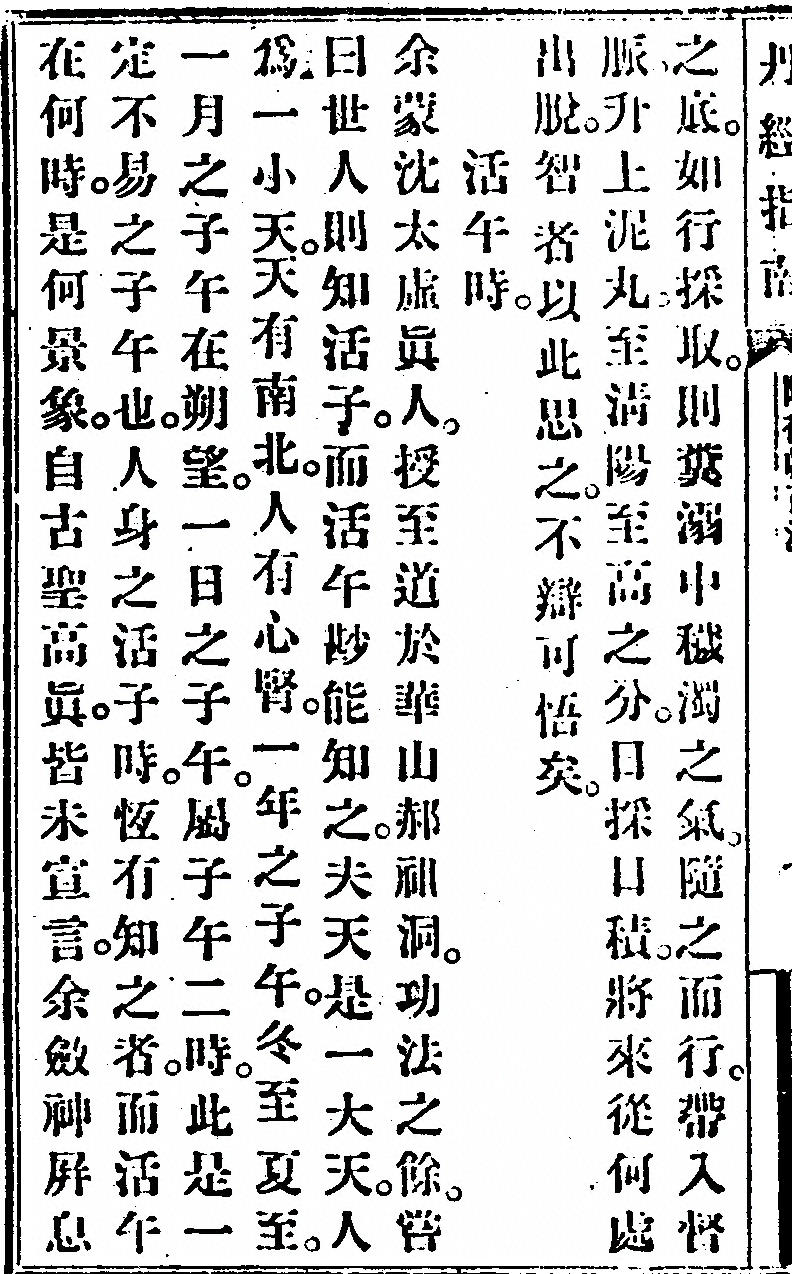 丹經指南
之底。如行採取。則糞溺中穢濁之氣。隨之而行。帶入督
脈。升上泥丸。至清陽至高之分。日採日積。將來從何處
出脫。智者以此思之。不辯可悟矣。
活午時。
余蒙沈太虛眞人。授至道於華山郝祖洞。功法之餘。嘗
曰世人則知活子。而活午尠能知之。夫天是一大天。人
爲一小天。天有南北。人有心腎。一年之子午。冬至夏至。
一月之子午在朔望。一日之子午。屬子午二時。此是一
定不易之子午也。人身之活子時。恆有知之者。而活午
在何時。是何景象。自古聖高眞。皆未宣言。余斂神屏息